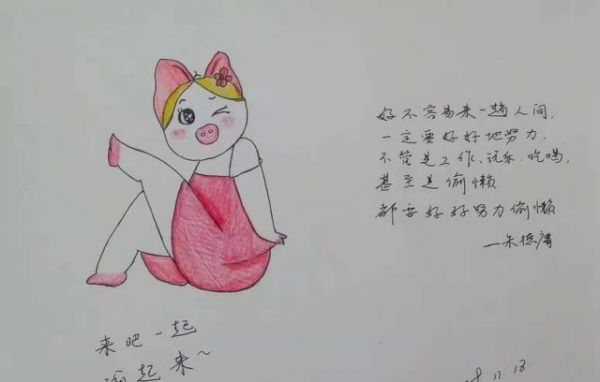 好不容易来一趟人间,
一定要好好地努力.
不管是工作、玩乐、吃喝,
甚至是偷懒
都要好好努力偷懒
—朱德庸
来吧一起
起来~
11.13.